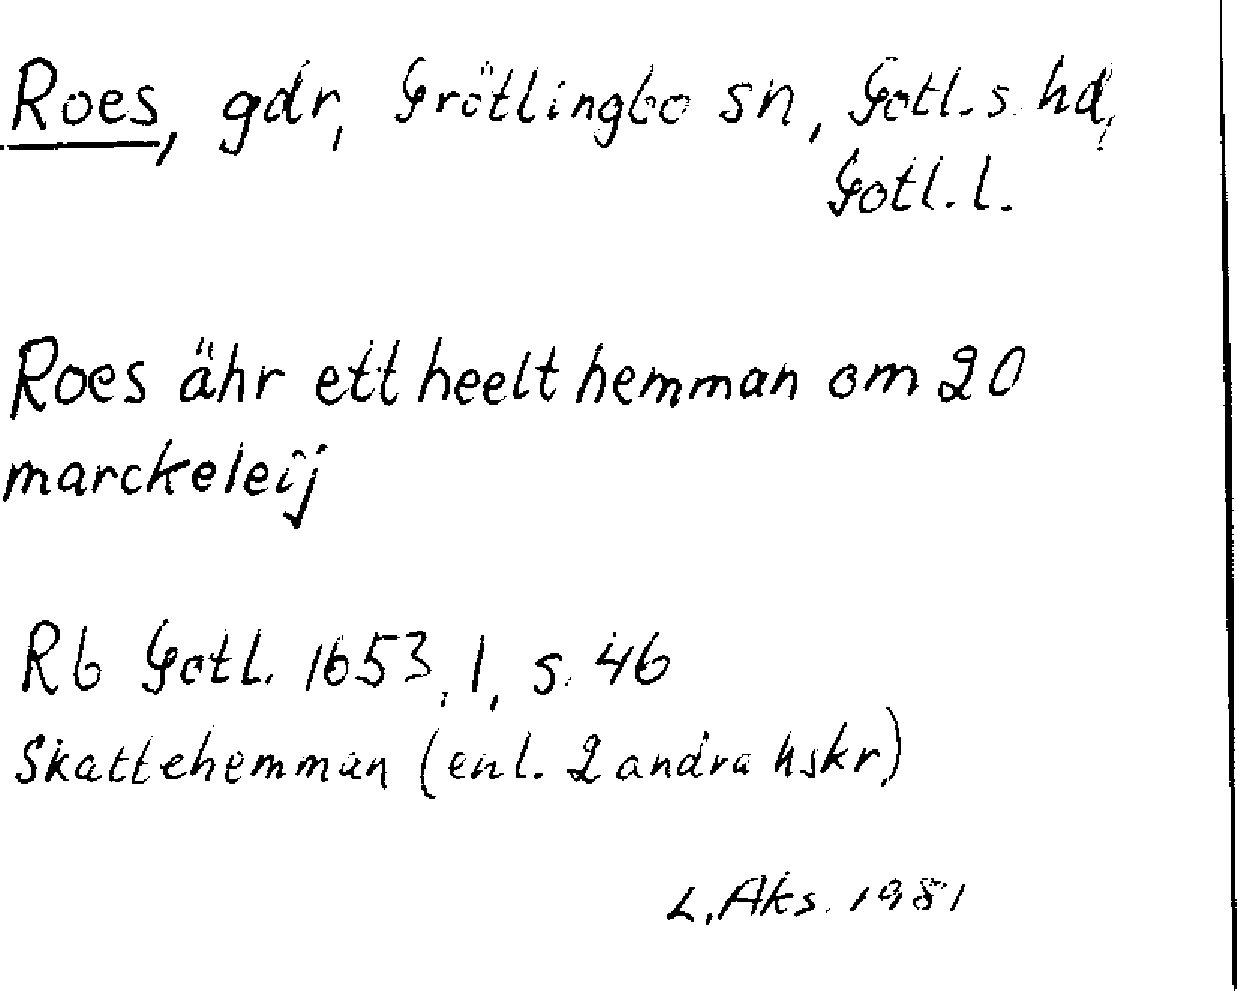 Roes, gdr, Grötlingbo sn, Gotl. s. hd,
Gotl. l.
Roes ähr ett heelt hemman om 20
marckeleij
Rb Gotl. 1653, 1, s. 46
Skattehemman (enl. 2 andra hskr)
L. Aks. 1981